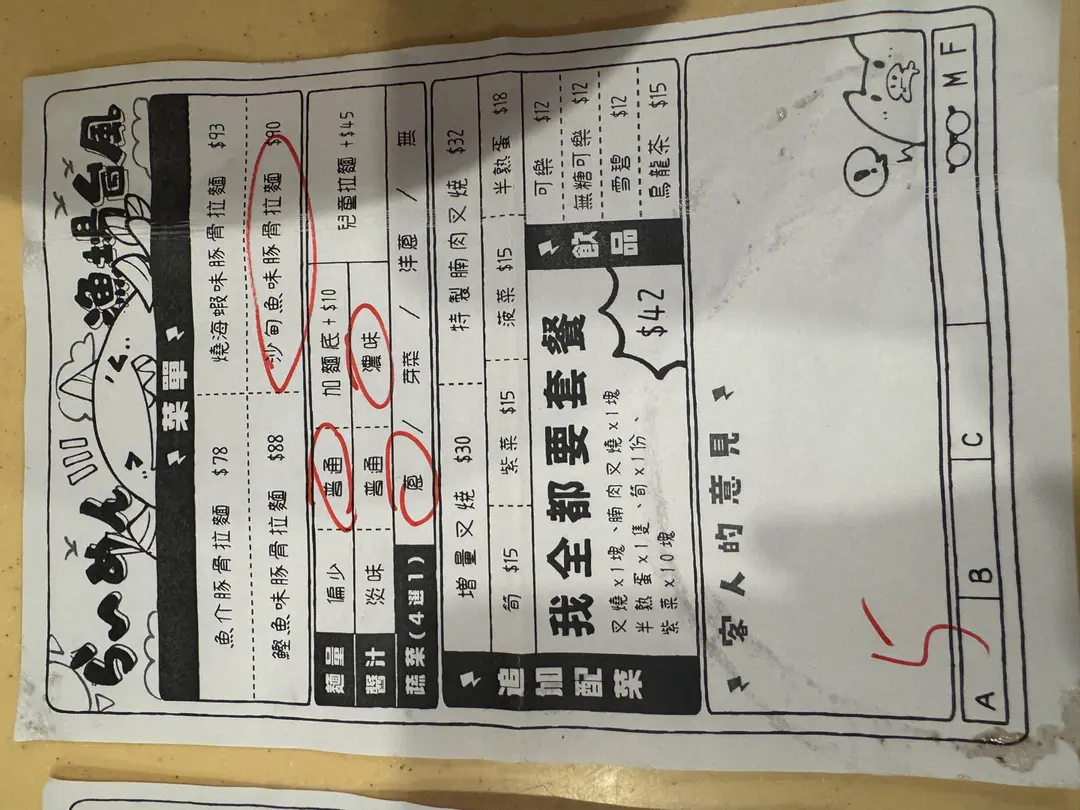 らーめん 漁場台風
菜單
魚介豚骨拉麵 $78
燒海蝦味豚骨拉麵 $93
鰹魚味豚骨拉麵 $88
沙甸魚味豚骨拉麵 $90
麵量 偏少 普通 加麵底+$10
兒童拉麵+$45
醬汁 淡味 普通 濃味
蔬菜(4選1) 蔥 / 芽菜 / 洋蔥 / 無
追加配菜
增量叉燒 $30
特製腩肉叉燒 $32
筍 $15
紫菜 $15
菠菜 $15
半熟蛋 $18
我全都要套餐
$42
叉燒x1塊、腩肉叉燒x1塊
半熟蛋x1隻、筍x1份、
紫菜x10塊
飲品
可樂 $12
無糖可樂 $12
雪碧 $12
烏龍茶 $15
客人的意見
5
A B C M F